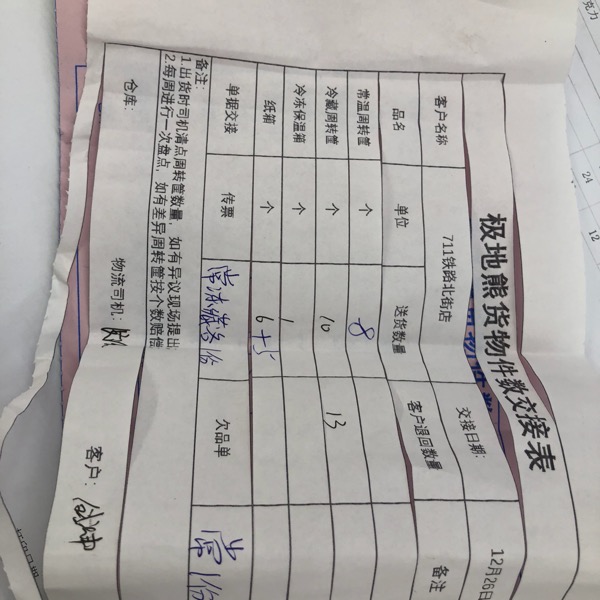 极地熊货物件数交接表
客户名称 711铁路北街店 交接日期: 12月26日
品名 单位 送货数量 客户退回数量 备注
常温周转筐 个 8
冷藏周转筐 个 10 13
冷冻保温箱 个 1
纸箱 个 6+5
单据交接 传票 欠品单 常1份
备注:
1.出货时司机清点周转筐数量,如有异议现场提出;
2.每周进行一次盘点,如有差异周转筐按个数赔偿
仓库: 物流司机: 客户:
克力
24
12